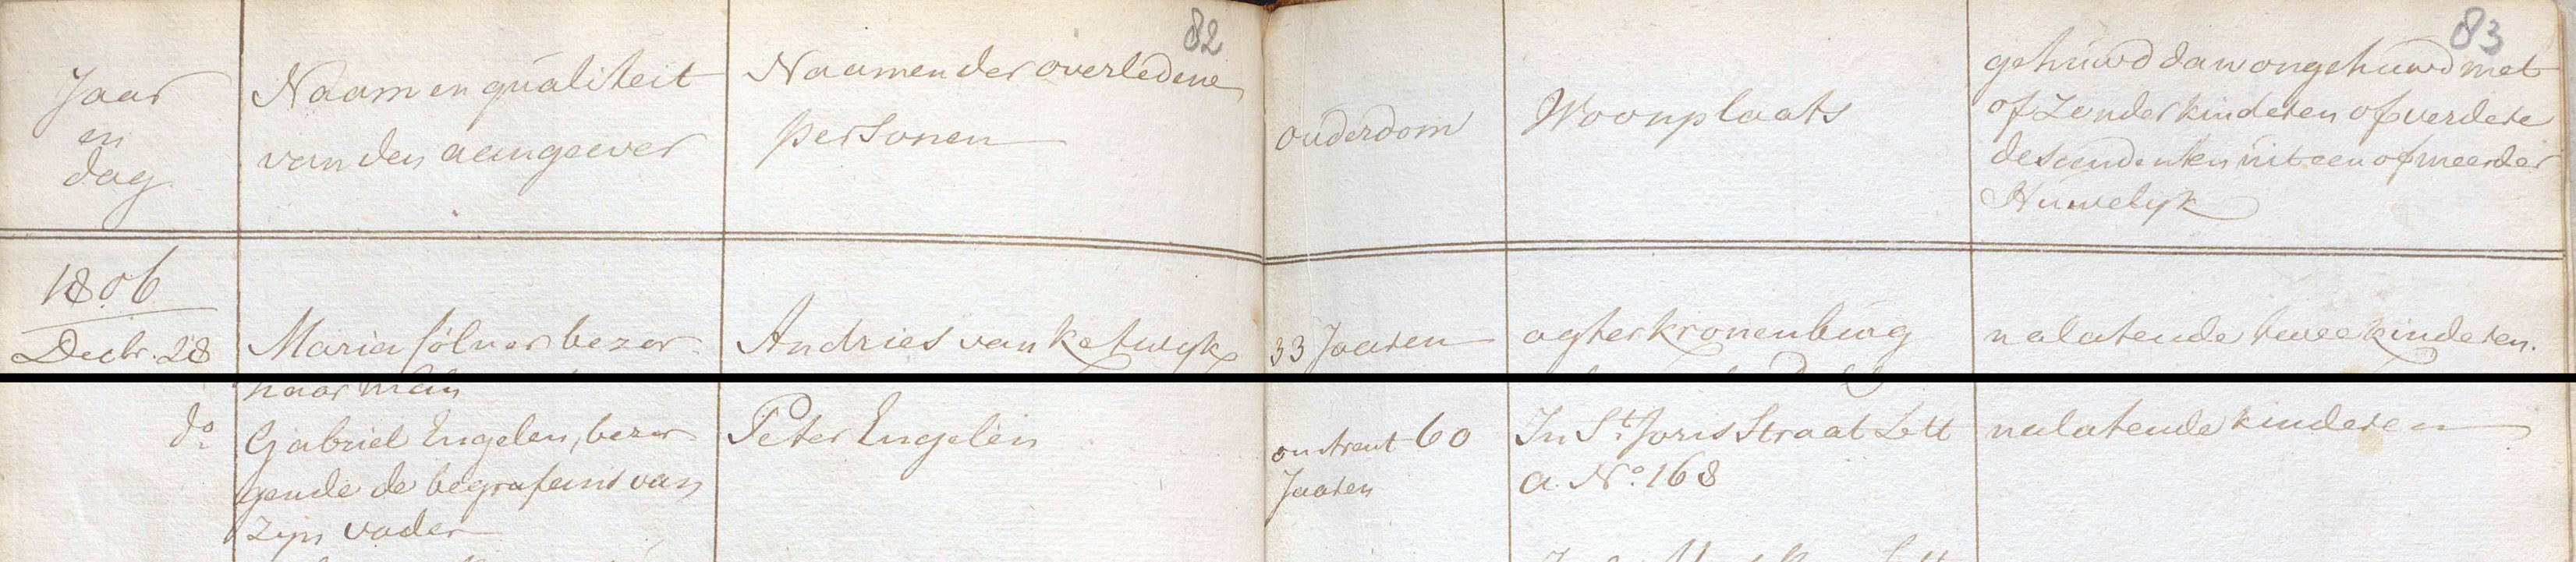 82
83
Jaar
en
dag
Naam en qualiteit
van den aangeever
Naamen der overledene
personen
ouderdom
Woonplaats
gehuwd dan ongehuwd met
of zonder kinderen of verdere
desandenten uit een of meerder
Huwelijk
1806
Decbr. 28
Maria Sölner bezor
Andries van Ketwyk
33 Jaaren
agter kronenburg
nalatende twee kinderen.
haar man
do
Gabriel Engelen, bezor
gende de begrafenis van
zijn vader
Peter Engelen
omtrent 60
Jaaren
In St. Joris Straat Lett
a. No. 168
nalatende kinderen